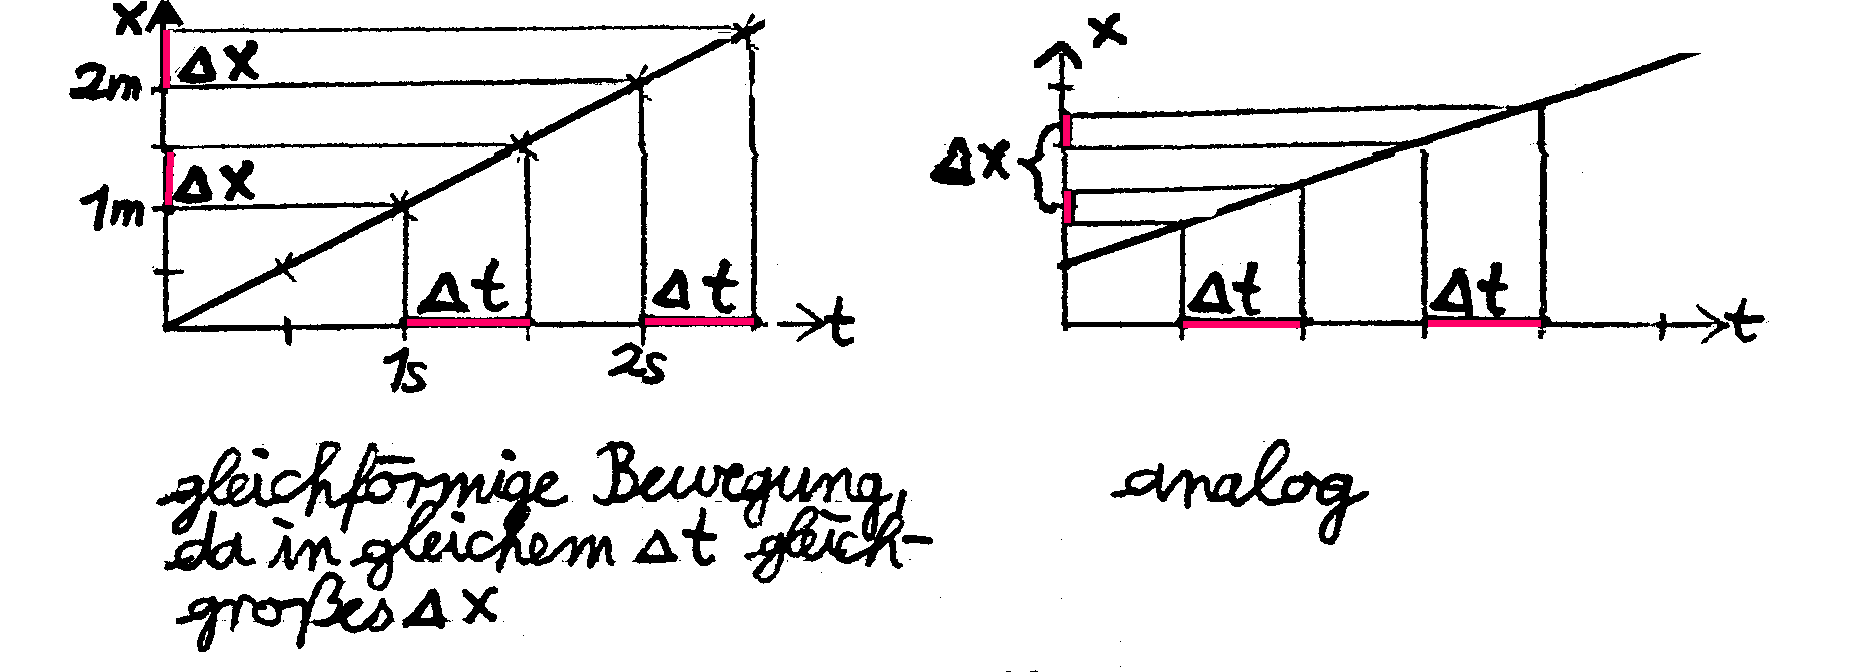 x
Δx
2m
Δx
1m
Δt Δt
t
1s 2s
x
Δx
Δt Δt
t
gleichförmige Bewegung,
da in gleichem Δt gleich-
großes Δx
analog